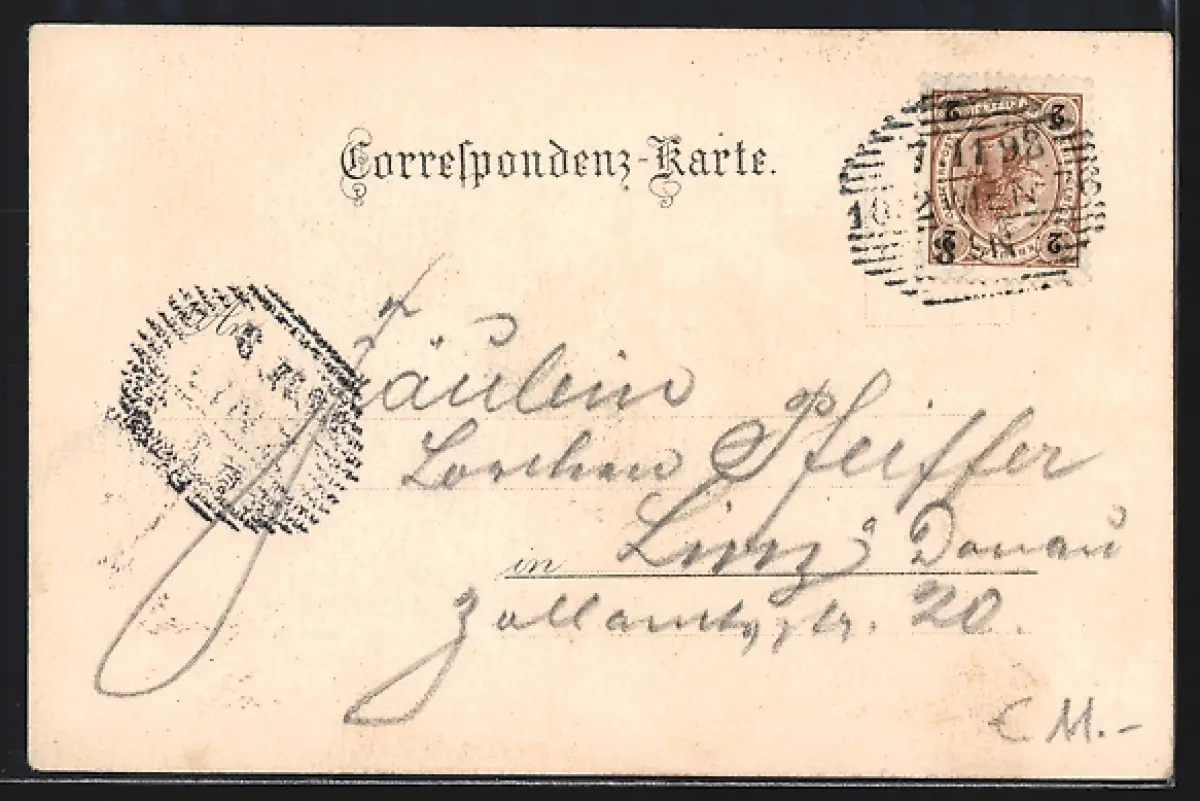 Correspondenz-Karte.
2 2
7 11 98
WIEN
2 2
An
Fräulein
Lorchen Pfeiffer
in Linz a Donau
Zollamtsstr. 20.
€ 11.-